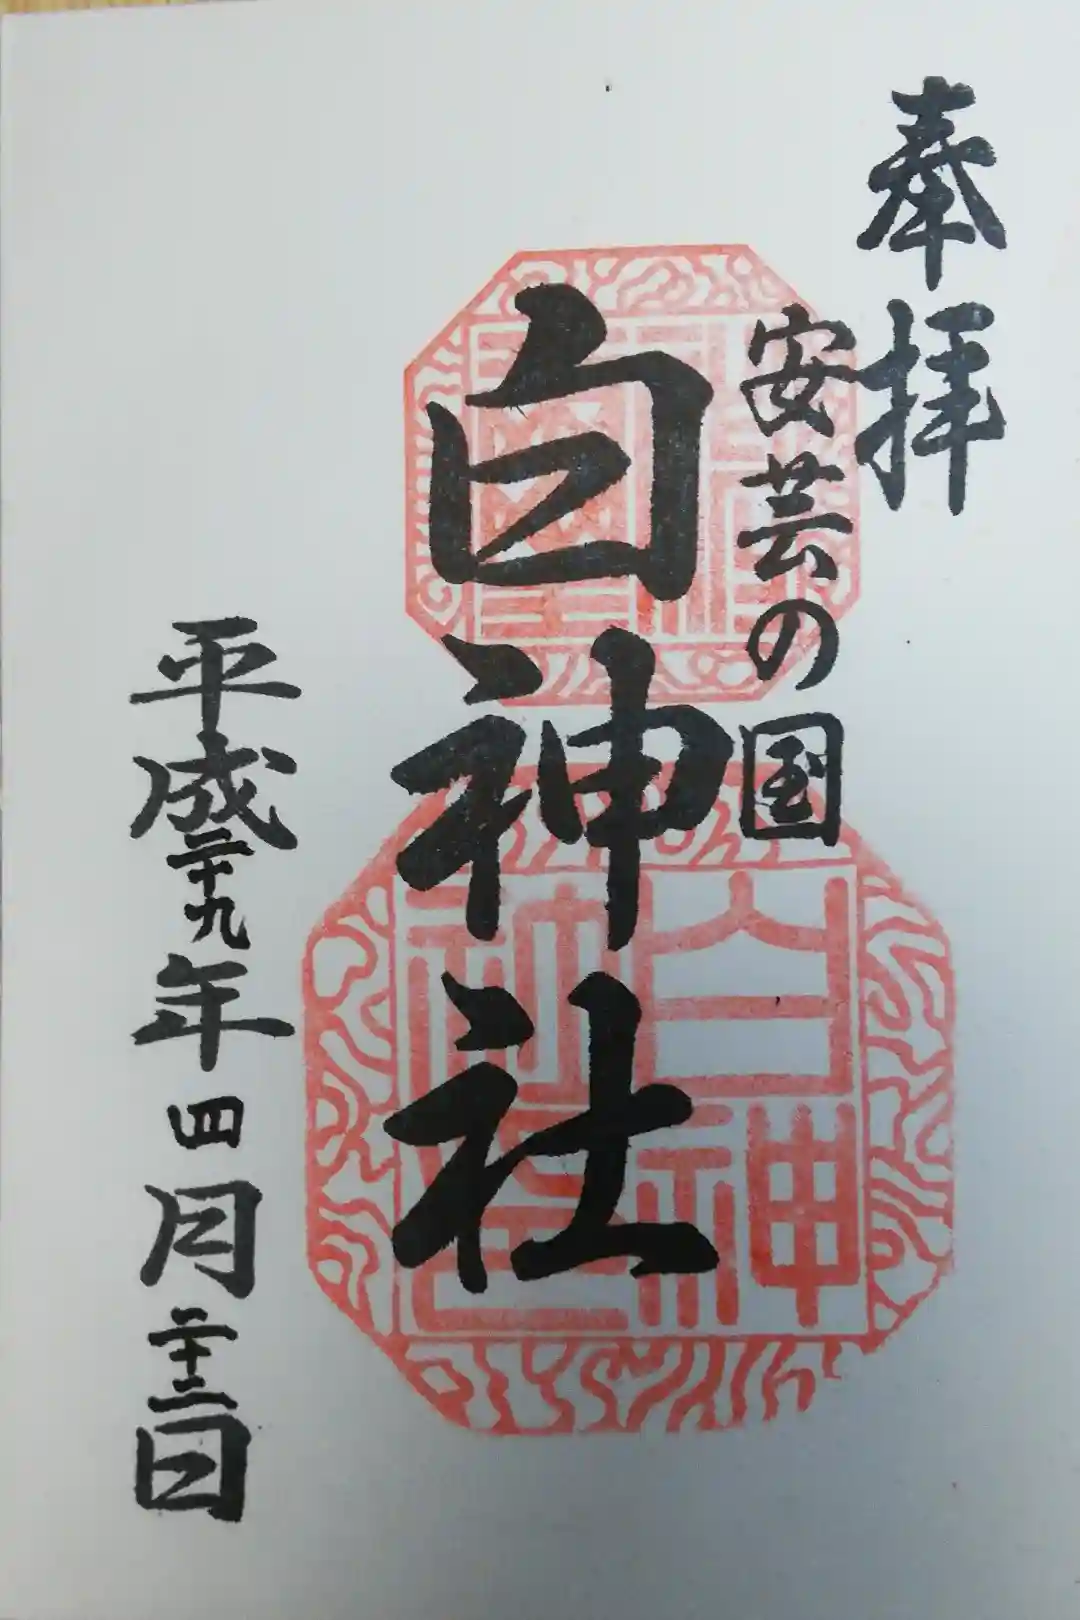 奉拝
安芸の国
白神社
平成二十九年四月二十二日
白神